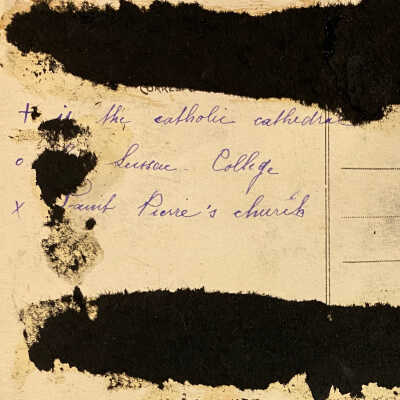 CORRE
+ is the catholic cathedral
o Sussac College
x Saint Pierre's church